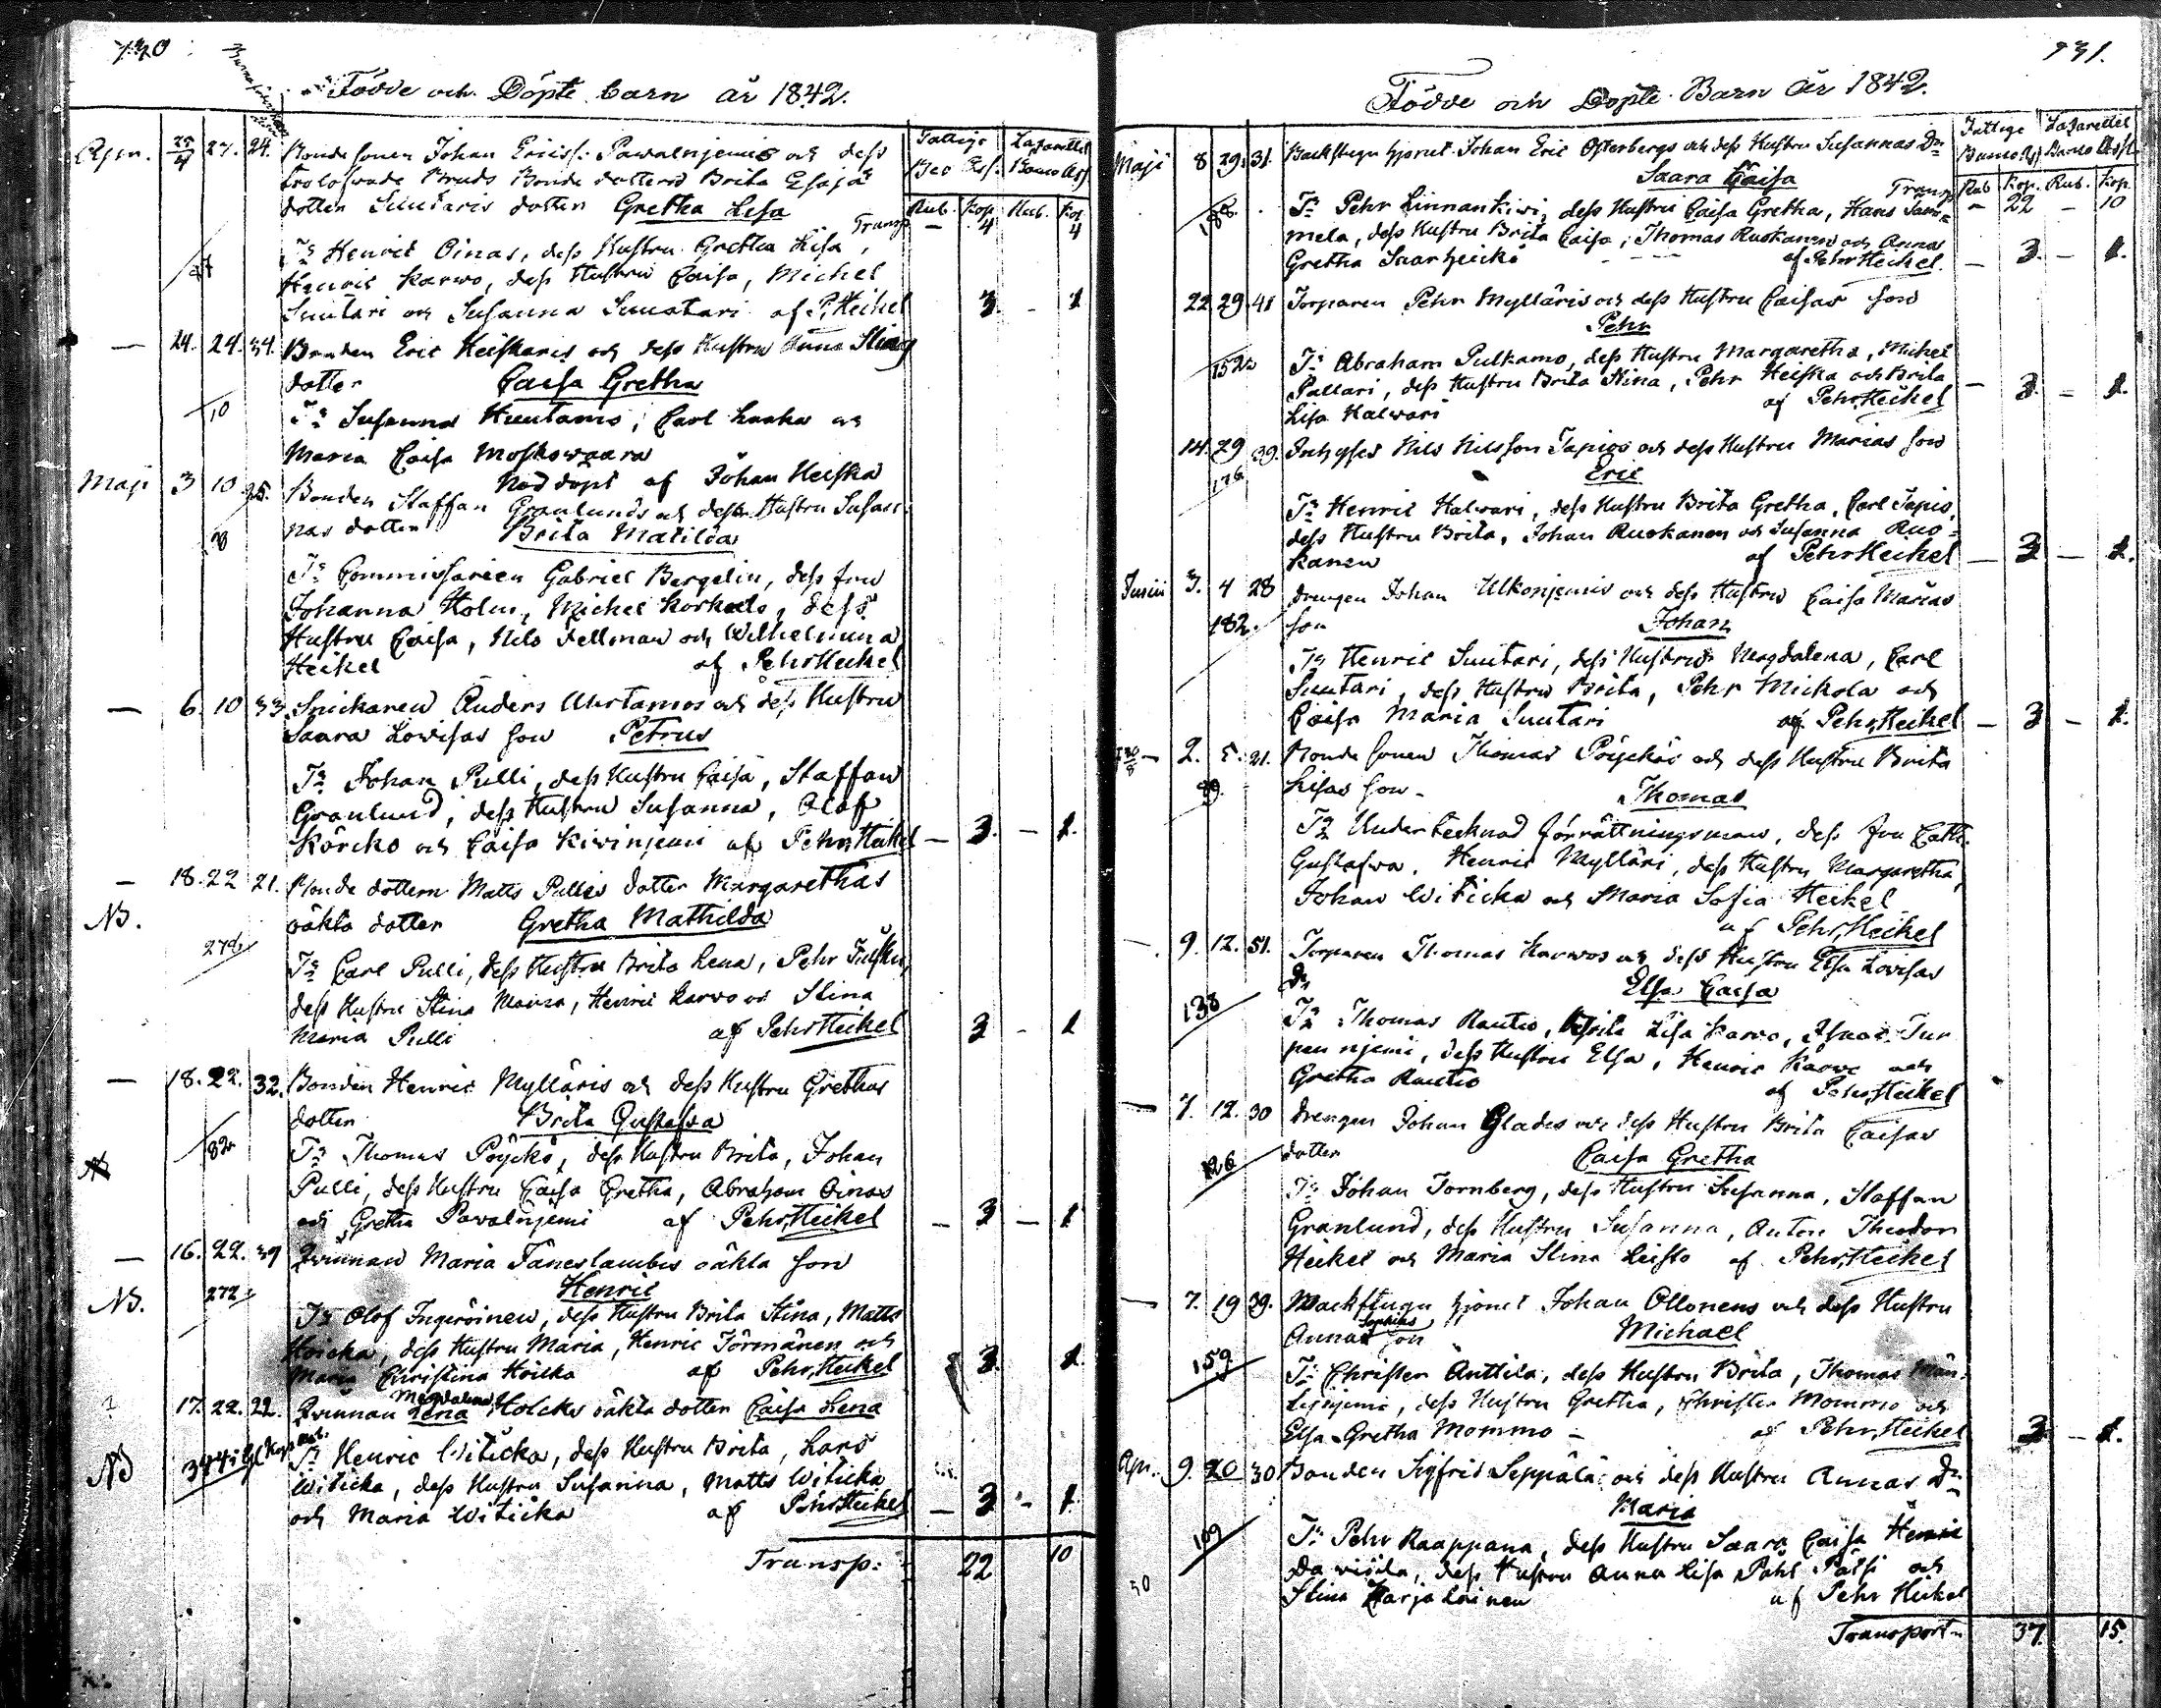 730
Födde och Döpte barn år 1842.
Fattige Lazarettet
Bco Ass. Banco Ass
Rub. Kop. Rub. Kop
Apr. 22/4 27. 24. Bondesonen Johan Ericss: Pawalnjemis och dess
trolofwade Bruds Bonde dotterns Brita Esajæ
dotter Suutaris dotter Gretha Lisa
Transp — 4 4
Tn Henric Oinas, dess Hustru Gretha Lisa,
Henric Karwo, dess Hustru Caisa, Michel
Suutari och Susanna Suutari af P. Heikel 3 - 1
— 24. 24. 34. Bonden Eric Heiskaris och dess Hustru Anna Stinas
dotter Caisa Gretha
10
Tn Susanna Huutamo, Carl Laaka och
Maria Caisa Moskowaara
Nöddöpt af Johan Heiska
Maji 3 10 25. Bonden Staffan Granlunds och dess Hustru Susan
nas dotter Brita Matilda
Tn Commissarien Gabriel Bergelin, dess fru
Johanna Holm, Michel Korkalo, dess
Hustru Caisa, Nils Fellman och Wilhelmina
Heikel af Pehr Heikel
— 6. 10 33. Snickaren Anders Uurtamos och dess Hustru
Saara Lowisas son Petrus
Tn Johan Pulli, dess Hustru Caisa, Staffan
Granlund, dess Hustru Susanna, Olof
Körcko och Caisa Kivinjemi af Pehr Heikel — 3. — 1.
— 18. 22 21. Bonde dottern Matts Pullis dotter Margarethas
NB. oäkta dotter Gretha Mathilda
Tn Carl Pulli, dess Hustru Brita Lena, Pehr
dess Hustru Stina Maria, Henric Karvo och Stina
Maria Pulli af Pehr Heikel 3 - 1
— 18. 22. 32. Bonden Henric Mylläris och dess Hustru Grethas
dotter Brita Gustafva
82
Tn Thomas Pöyckö, dess Hustru Brita, Johan
Pulli, dess Hustru Caisa Gretha, Abraham Oinas
och Gretha Pawalnjemi af Pehr Heikel — 3 — 1
— 16. 22. 39 Qvinnan Maria Täneslambis oäkta son
NB. 272 Henric
Tn Olof Ingeröinen, dess Hustru Brita Stina, Matts
Höicka, dess Hustru Maria, Henric Törmänen och
Maria Christina Höicka af Pehr Heikel 3. 1.
17. 22. 22. Qvinnan Magdalena Lena Holcks oäkta dotter Caisa Lena
NB
Tn Henric Witicka, dess Hustru Brita, Lars
Witicka, dess Hustru Susanna, Matts Witicka
och Maria Witicka af Pehr Heikel — 3 - 1
Transp: 22 10
731.
Födde och Döpte Barn år 1842.
Fattige Lazarettet
Banco Ass Banco Ass
Rub Kop. Rub. Kop.
Maji 8 29. 31. Backstugu hjonet Johan Eric Österbergs och dess Hustru Susannas Dr
Saara Caisa
Transp — 22 — 10
Tn Pehr Linnankiwi, dess Hustru Caisa Gretha, Hans Sam=
mela, dess Hustru Brita Caisa, Thomas Ruokanen och Anna
Gretha Saarheickö af Pehr Heikel. — 3. — 1.
22 29 41 Torparen Pehr Mylläris och dess Hustru Caisas son
Pehr
152
Tn Abraham Pulkamo, dess Hustru Margaretha, Michel
Pallari, dess Hustru Brita Stina, Pehr Heiska och Brita
Lisa Halwari af Pehr Heikel — 3. — 1.
14. 29 39. Inhyses Nils Nilsson Tapios och dess Hustru Marias son
176 Eric
Tn Henric Halwari, dess Hustru Brita Gretha, Carl Tapio,
dess Hustru Brita, Johan Ruokanen och Susanna Ruo=
kanen af Pehr Heikel — 3 — 1.
Junii 3. 4 28 Drengen Johan Ulkonjemis och dess Hustru Caisa Marias
182. son Johan
Tn Henric Suutari, dess Hustru Magdalena, Carl
Suutari, dess Hustru Brita, Pehr Mickola och
Caisa Maria Suutari af Pehr Heikel — 3 — 1.
— 2. 5. 21. Bonde sonen Thomas Pöyckös och dess Hustru Brita
89. Lisas son Thomas
Tn Undertecknad förrättningsman, dess fru Cath.
Gustafwa, Henric Mylläri, dess Hustru Margaretha,
Johan Witicka och Maria Sofia Heikel
af Pehr Heikel
— 9. 12. 51. Torparen Thomas Karwos och dess Hustru Elsa Lovisas
Dr Elsa Caisa
138
Tn Thomas Rautio, Brita Lisa Karvo, Isaac Tur
pen njemi, dess Hustru Elsa, Henric Karvo och
Gretha Rautio af Pehr Heikel
— 7. 12. 30 Drengen Johan Glades och dess Hustru Brita Caisas
126 dotter Caisa Gretha
Tn Johan Tornberg, dess Hustru Susanna, Staffan
Granlund, dess Hustru Susanna, Anton Theodor
Heikel och Maria Stina Leisto af Pehr Heikel
— 7. 19 39. Backstugu hjonet Johan Ollonens och dess Hustru
Annas Sophias son Michael
159
Tn Christer Anttila, dess Hustru Brita, Thomas Män
tynjemi, dess Hustru Gretha, Christer Mommo och
Elsa Gretha Mommo — af Pehr Heikel 3 — 1.
Apr. 9. 20 30 Bonden Sigfrid Seppälä och dess Hustru Annas Dr
Maria
109
Tn Pehr Raappana, dess Hustru Saara Caisa Henric
Da viiila, dess Hustru Anna Lisa Påhl Pätsi och
Stina Karjalainen af Pehr Heikel
Transport 37. 15.